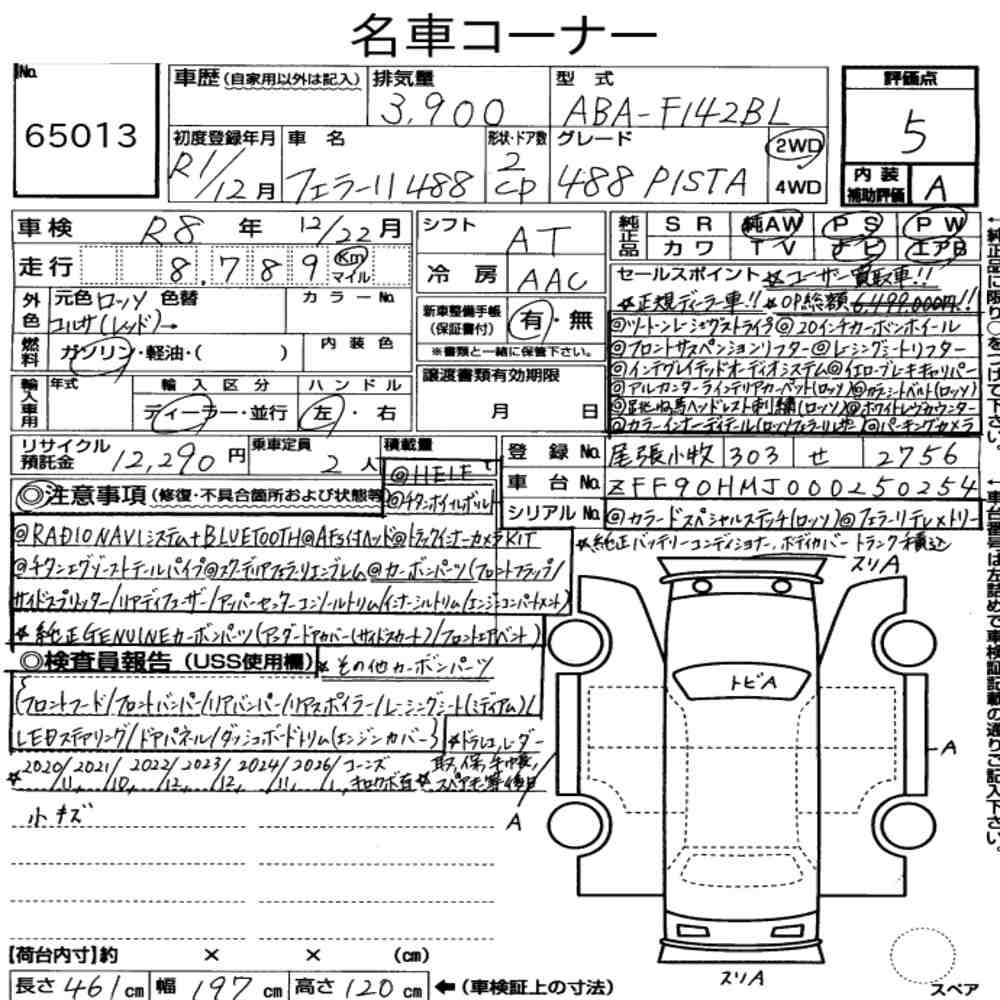 名車コーナー
No. 65013
車歴 (自家用以外は記入)
排気量 3,900
型式 ABA-F142BL
評価点 5
初度登録年月 R1/12月
車名 フェラーリ 488
形状・ドア数 2 CP
グレード 488 PISTA
2WD
4WD
内装補助評価 A
車検 R8年 12/22月
走行 8,789 Km マイル
シフト AT
冷房 AAC
純正品 SR 純AW PS PW
カワ TV ナビ エアB
外色 元色 ロッソ 色替 カラーNo.
コルサ(レッド)→
燃料 ガソリン・軽油・( ) 内装色
新車整備手帳(保証書付) 有・無
※書類と一緒に保管下さい。
輸入車用 年式 輸入区分 ハンドル
ディーラー・並行 左・右
譲渡書類有効期限
月 日
セールスポイント ☆ユーザー買取車!!
☆正規ディーラー車!! ☆OP総額6,499,000円!!
◎ツートーンレーシングストライプ ◎20インチカーボンホイール
◎フロントサスペンションリフター ◎レーシングシートリフター
◎インテグレイテッドオーディオシステム ◎イエローブレーキキャリパー
◎アルカンターラインテリアカーペット(ロッソ) ◎カラーシートベルト(ロッソ)
◎跳ね馬ヘッドレスト刺繍(ロッソ) ◎ホワイトレヴカウンター
◎カラーインナーディテール(ロッソフェラーリレザー) ◎パーキングカメラ
リサイクル預託金 12,290円
乗車定員 2人
積載量
◎HELE
◎チタンホイールボルト
登録No. 尾張小牧 303 せ 2756
車台No. ZFF90HMJ000250254
シリアルNo. ◎カラードスペシャルステッチ(ロッソ) ◎フェラーリテレメトリー
☆純正バッテリーコンディショナー、ボディカバー トランク積込
◎注意事項 (修復・不具合箇所および状態等)
◎RADIO NAVIシステム+BLUETOOTH ◎AFS付ヘッド ◎トラックインナーカメラKIT
◎チタンエグゾーストテールパイプ ◎スクーデリアフェラーリエンブレム ◎カーボンパーツ(フロントフラップ/
サイドスプリッター/リアディフューザー/アッパーセンターコンソールトリム/インナーシルトリム/エンジンコンパートメント)
☆純正GENUINEカーボンパーツ(アンダードアカバー(サイドスカート)/フロントエアベント)
◎検査員報告 (USS使用欄) ☆その他カーボンパーツ
{フロントフード/フロントバンパー/リアバンパー/リアスポイラー/レーシングシート(ミディアム)/
LEDステアリング/ドアパネル/ダッシュボードトリム(エンジンカバー)} ☆ドラレコ、レーダー
☆2020/11, 2021/10, 2022/12, 2023/12, 2024/11, 2026/1, コーンズ 取、保、手帳、
☆スペアキー等後日
小キズ
スリA
トビA
A
A
スリA
スペア
【荷台内寸】約 × × (cm)
長さ 461 cm 幅 197 cm 高さ 120 cm ←(車検証上の寸法)
←純正品に限り○をつけて下さい。
←車台番号は左詰めで車検証記載の通りご記入下さい。